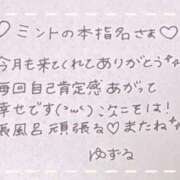 ♡ミントの本指名さま♡
今月も来てくれてありがとう
毎回自己肯定感あがって
幸せです(˶'ᵕ'˶)次こそは!
長風呂頑張る♡またね
ゆずる